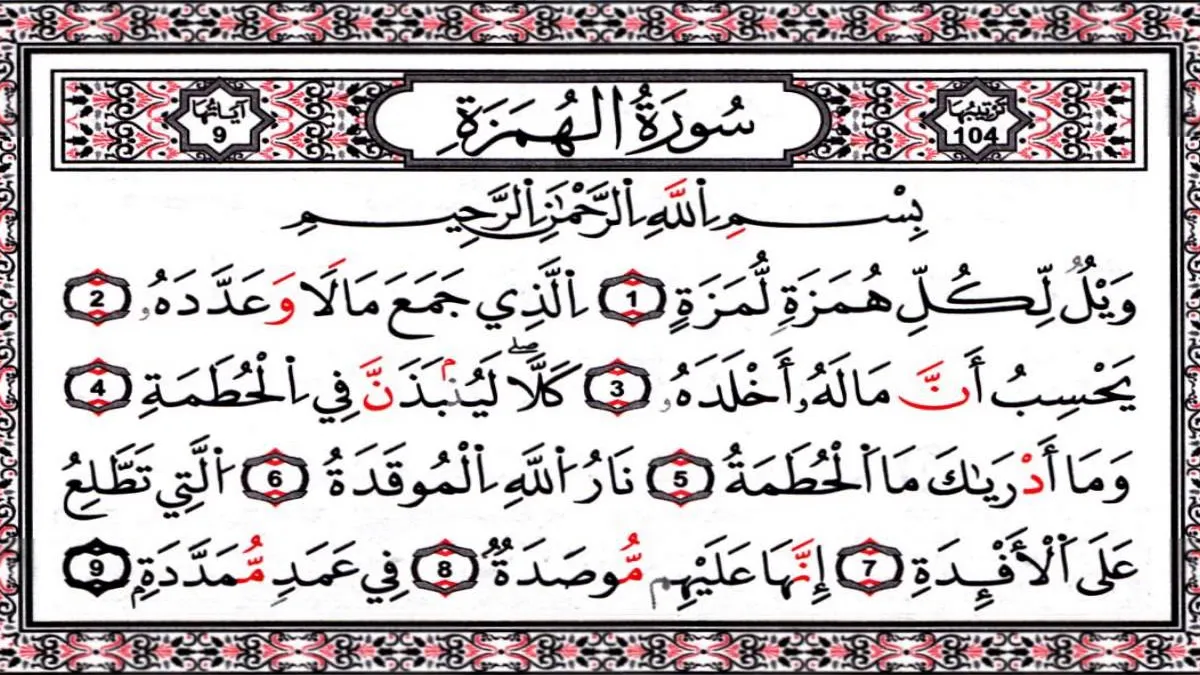 ترتيبها 104 سُورَةُ الهُمَزَةِ آياتها 9
بِسْمِ اِللَّهِ اِلرَّحْمَٰنِ اِلرَّحِيمِ
وَيْلٌ لِّكُلِّ هُمَزَةٍ لُّمَزَةٍ 1 اِلَّذِي جَمَعَ مَالًا وَعَدَّدَهُۥ 2
يَحْسِبُ أَنَّ مَالَهُۥ أَخْلَدَهُۥ 3 كَلَّاۖ لَيُنۢبَذَنَّ فِي اِلْحُطَمَةِ 4
وَمَا أَدْرَىٰكَ مَا اَلْحُطَمَةُ 5 نَارُ اُللَّهِ اِلْمُوقَدَةُ 6 اَلَّتِي تَطَّلِعُ
عَلَى اَلْأَفْـِٕدَةِ 7 إِنَّهَا عَلَيْهِم مُّوصَدَةٌ 8 فِي عَمَدٍ مُّمَدَّدَةٍۭ 9